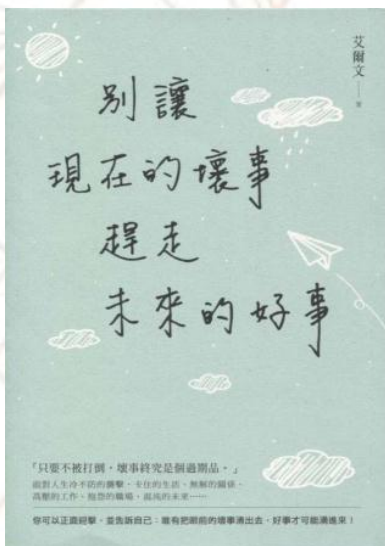 艾爾文 著
別讓
現在的壞事
趕走
未來的好事
「只要不被打倒，壞事終究是個過期品。」
面對人生冷不防的襲擊、卡住的生活、無解的關係、
高壓的工作、抱怨的職場、混沌的未來……
你可以正面迎擊，並告訴自己：唯有把眼前的壞事清出去，好事才可能湧進來！